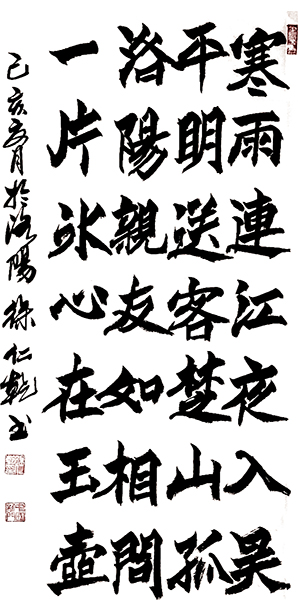 寒雨連江夜入吳
平明送客楚山孤
洛陽親友如相問
一片冰心在玉壺
己亥夏月於洛陽徐仁乾书